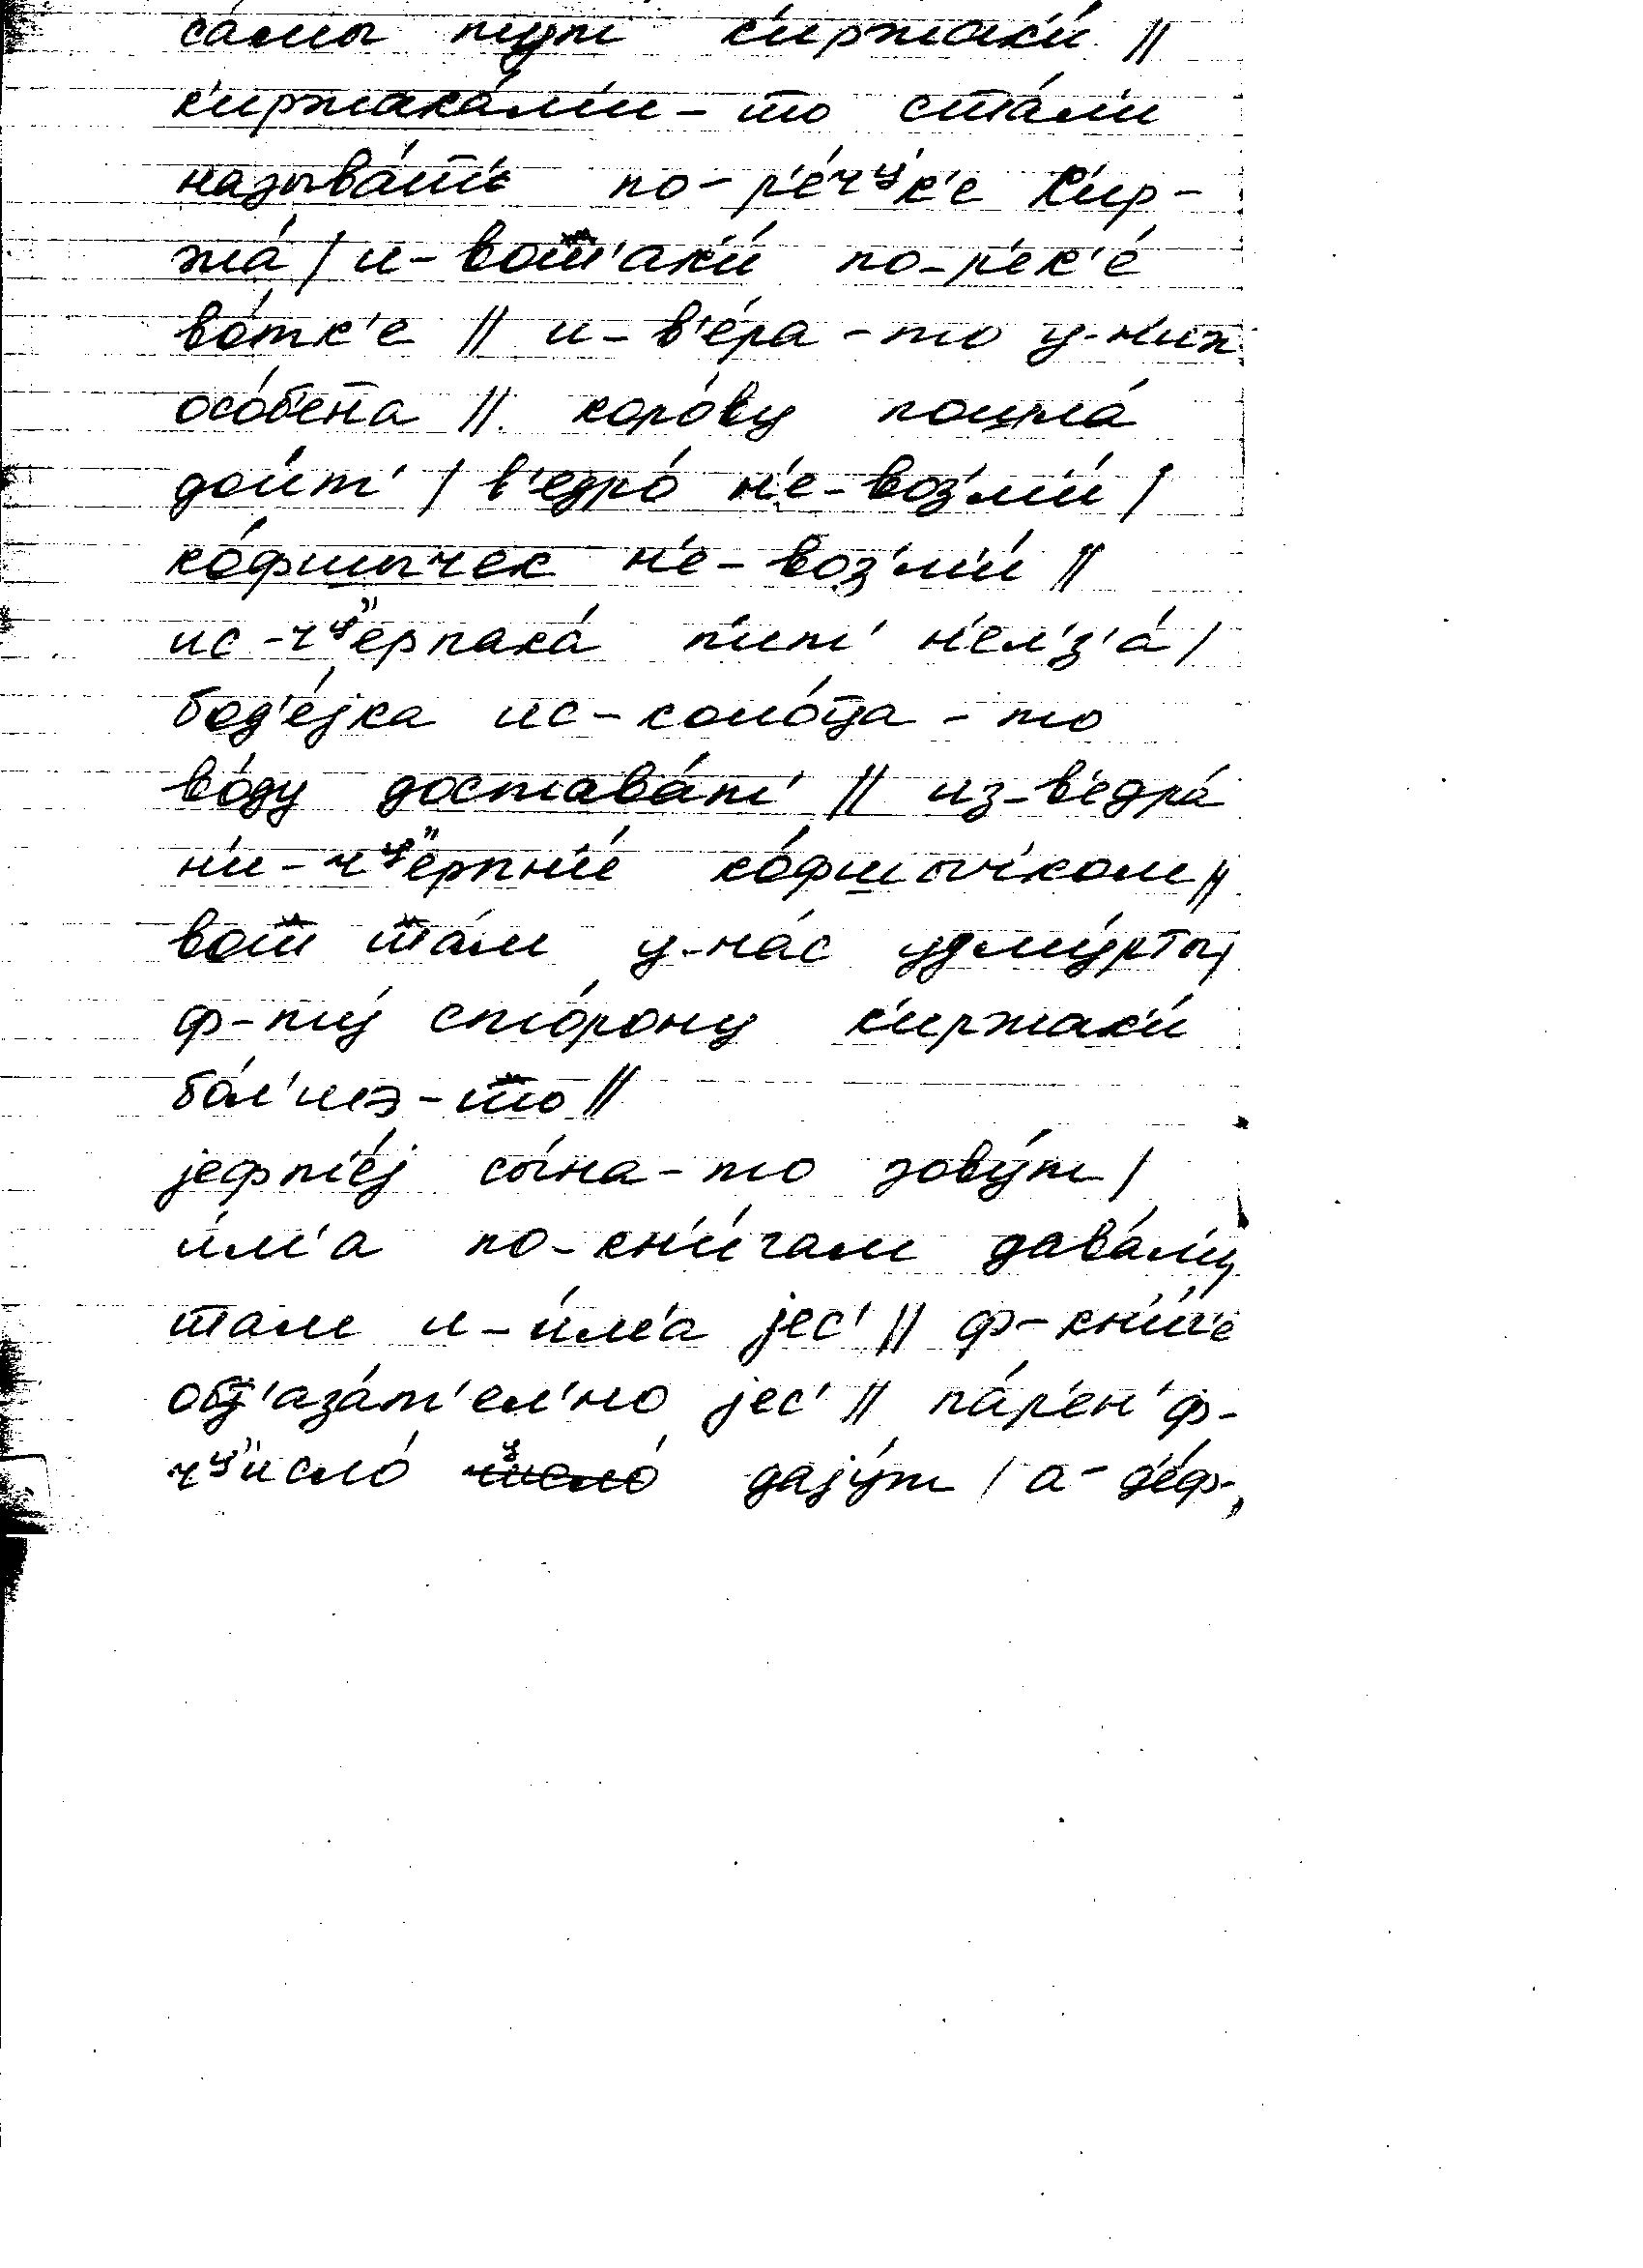 са́мы тут к'иржак'и́ //
к'иржака́м'и-то ста́л'и
называ́т' по-р'е́чᶣк'е К'ир-
жа́ / и-вот'ак'и́ по-р'ек'е́
во́тк'е // и-в'е́ра-то у-н'их
осо́б'ен̄а // коро́ву пошла́
дои́т' / в'едро́ н'е-воз'м'и́ /
ко́фшычек н'е-воз'м'и́ //
ис-чᶣ"ерпака́ п'ит' н'ел'з'а́ /
бод'е́јка ис-коло́ц̄а-то
во́ду достава́т' // из-в'едра́
н'и-чᶣ"ерпн'и́ ко́фшычком //
вот та́м у-на́с удму́рты /
ф-ту́ сто́рону к'иржак'и́
бо́л'шэ-то //
јефт'е́ј сы́на-то зову́т /
и́м'а по-кн'и́гам дава́л'и /
там и-и́м'а јес' // ф-кн'и́г'е
об'аза́т'ел'но јес' // па́р'ен' ф-
чᶣ"исло́ дају́т / а-д'е́ф-